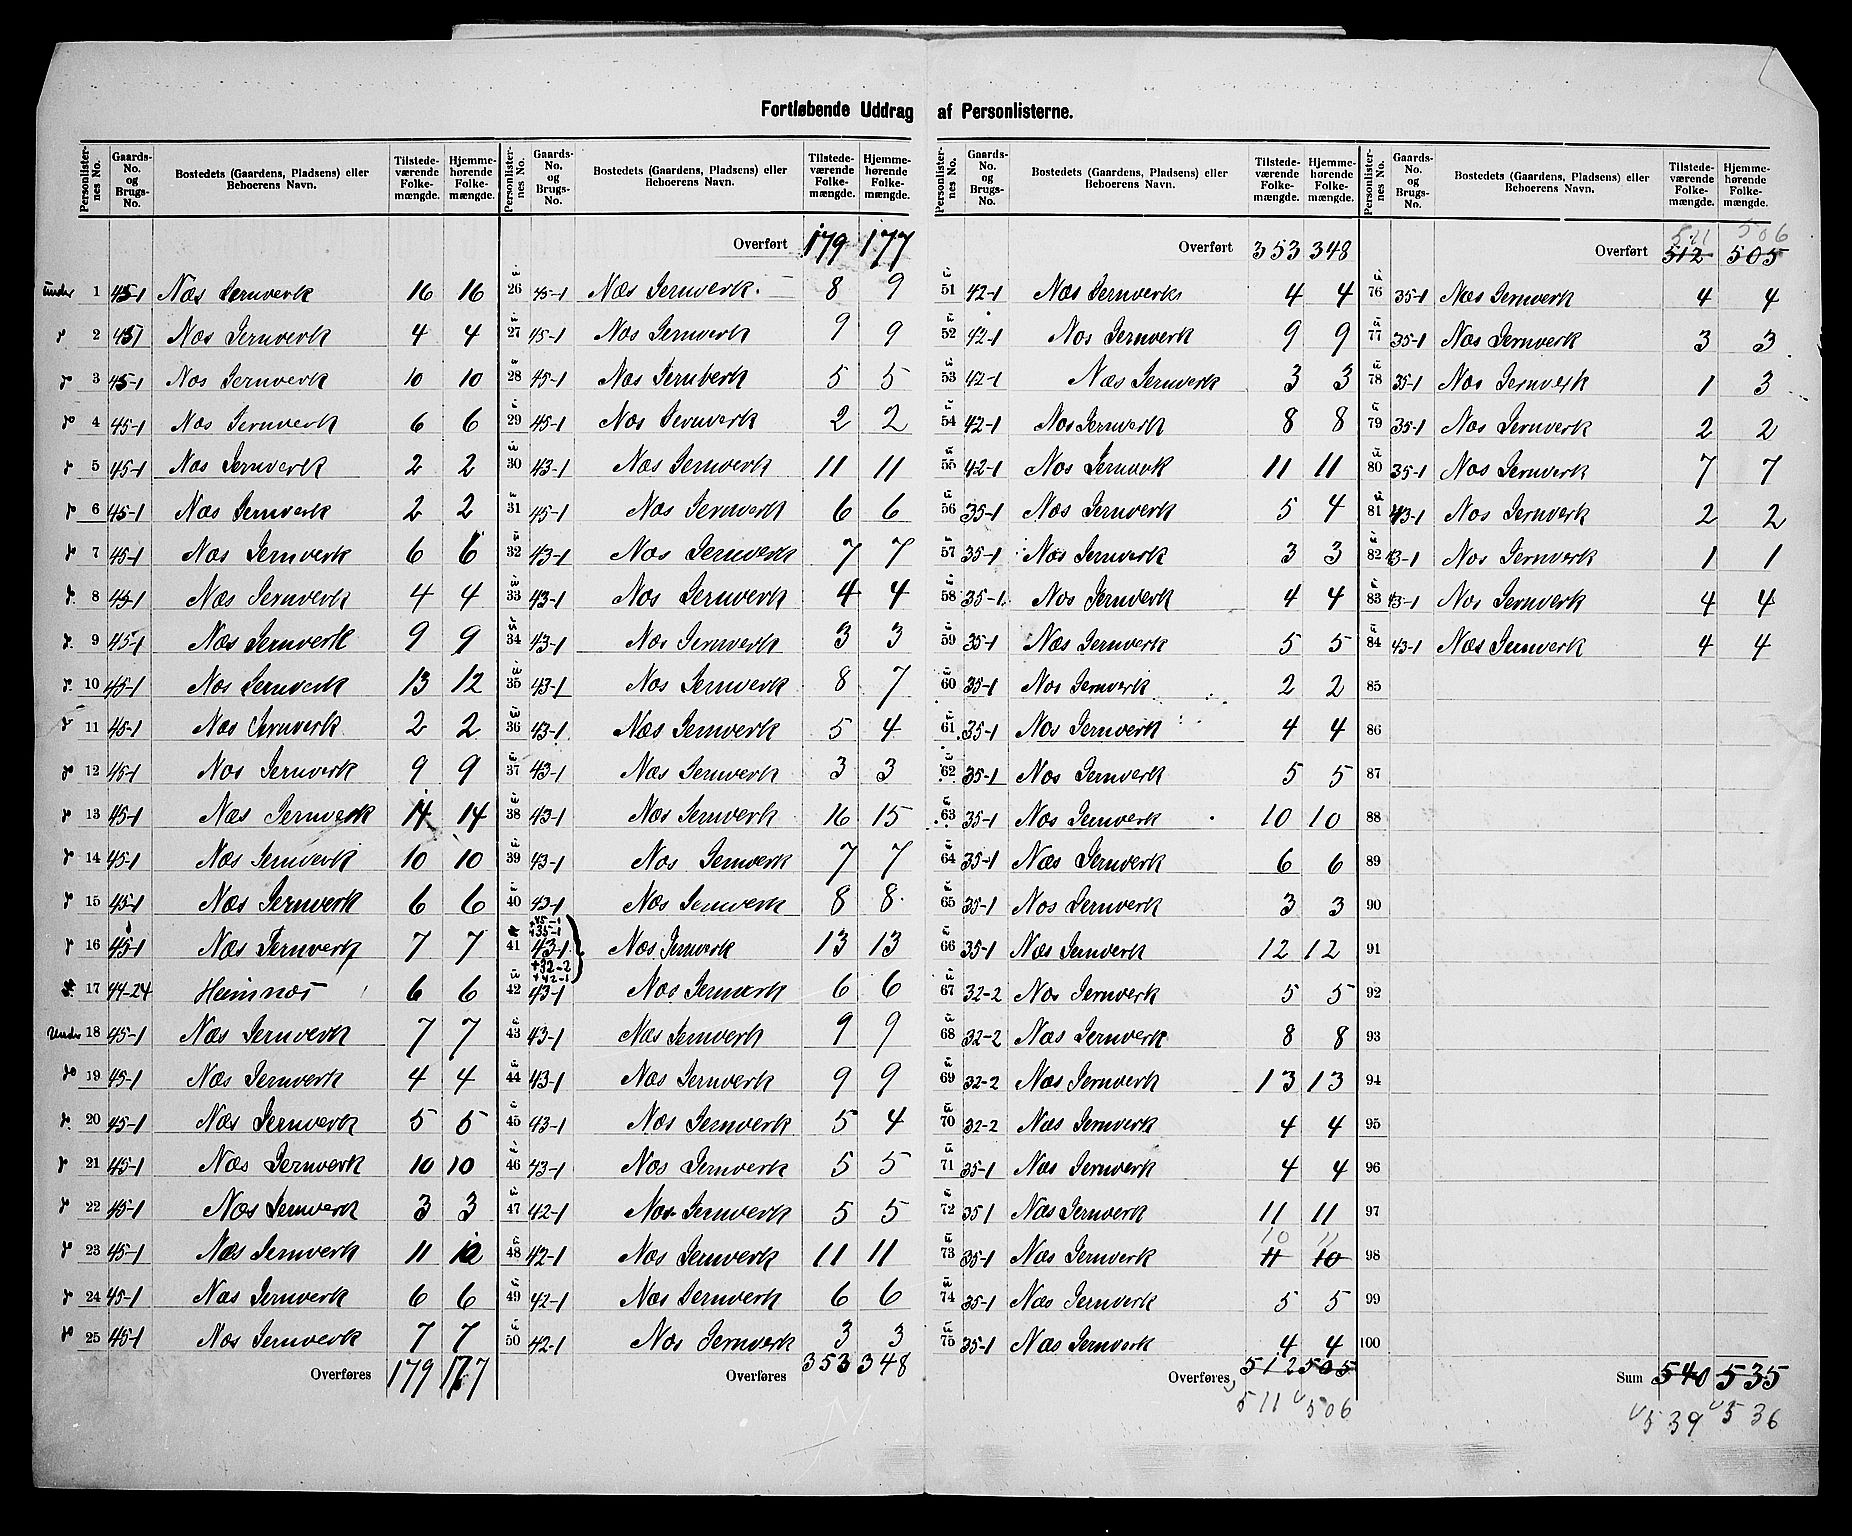 Fortløbende Uddrag af Personlisternе.
Personlisternes No. | Gaards-No. og Brugs-No. | Bostedets (Gaardens, Pladsens) eller Beboerens Navn. | Tilstedeværende Folkemængde. | Hjemmehørende Folkemængde.
under 1 45-1 Næs Jernverk 16 16
2 45-1 Næs Jernverk 4 4
3 45-1 Næs Jernverk 10 10
4 45-1 Næs Jernverk 6 6
5 45-1 Næs Jernverk 2 2
6 45-1 Næs Jernverk 2 2
7 45-1 Næs Jernverk 6 6
8 45-1 Næs Jernverk 4 4
9 45-1 Næs Jernverk 9 9
10 45-1 Næs Jernverk 13 12
11 45-1 Næs Jernverk 2 2
12 45-1 Næs Jernverk 9 9
13 45-1 Næs Jernverk 14 14
14 45-1 Næs Jernverk 10 10
15 45-1 Næs Jernverk 6 6
16 45-1 Næs Jernverk 7 7
17 44-24 Heimnæs 6 6
Under 18 45-1 Næs Jernverk 7 7
19 45-1 Næs Jernverk 4 4
20 45-1 Næs Jernverk 5 5
21 45-1 Næs Jernverk 10 10
22 45-1 Næs Jernverk 3 3
23 45-1 Næs Jernverk 11 10
24 45-1 Næs Jernverk 6 6
25 45-1 Næs Jernverk 7 7
Overføres 179 177
Personlisternes No. | Gaards-No. og Brugs-No. | Bostedets (Gaardens, Pladsens) eller Beboerens Navn. | Tilstedeværende Folkemængde. | Hjemmehørende Folkemængde.
Overført 179 177
u 26 45-1 Næs Jernverk 8 9
u 27 45-1 Næs Jernverk 9 9
u 28 45-1 Næs Jernverk 5 5
u 29 45-1 Næs Jernverk 2 2
u 30 43-1 Næs Jernverk 11 11
u 31 45-1 Næs Jernverk 6 6
u 32 43-1 Næs Jernverk 7 7
u 33 43-1 Næs Jernverk 4 4
u 34 43-1 Næs Jernverk 3 3
u 35 43-1 Næs Jernverk 8 7
u 36 43-1 Næs Jernverk 5 4
u 37 43-1 Næs Jernverk 3 3
u 38 43-1 Næs Jernverk 16 15
u 39 43-1 Næs Jernverk 7 7
u 40 43-1 Næs Jernverk 8 8
+45-1
+35-1
u 41 43-1 Næs Jernverk 13 13
+32-2
+42-1
u 42 43-1 Næs Jernverk 6 6
u 43 43-1 Næs Jernverk 9 9
u 44 43-1 Næs Jernverk 9 9
u 45 43-1 Næs Jernverk 5 4
u 46 43-1 Næs Jernverk 5 5
u 47 42-1 Næs Jernverk 5 5
u 48 42-1 Næs Jernverk 11 11
u 49 42-1 Næs Jernverk 6 6
u 50 42-1 Næs Jernverk 3 3
Overføres 353 348
Personlisternes No. | Gaards-No. og Brugs-No. | Bostedets (Gaardens, Pladsens) eller Beboerens Navn. | Tilstedeværende Folkemængde. | Hjemmehørende Folkemængde.
Overført 353 348
u 51 42-1 Næs Jernverk 4 4
u 52 42-1 Næs Jernverk 9 9
u 53 42-1 Næs Jernverk 3 3
u 54 42-1 Næs Jernverk 8 8
u 55 42-1 Næs Jernverk 11 11
u 56 35-1 Næs Jernverk 5 4
u 57 35-1 Næs Jernverk 3 3
u 58 35-1 Næs Jernverk 4 4
u 59 35-1 Næs Jernverk 5 5
u 60 35-1 Næs Jernverk 2 2
u 61 35-1 Næs Jernverk 4 4
u 62 35-1 Næs Jernverk 5 5
u 63 35-1 Næs Jernverk 10 10
u 64 35-1 Næs Jernverk 6 6
u 65 35-1 Næs Jernverk 3 3
u 66 35-1 Næs Jernverk 12 12
u 67 32-2 Næs Jernverk 5 5
u 68 32-2 Næs Jernverk 8 8
u 69 32-2 Næs Jernverk 13 13
u 70 32-2 Næs Jernverk 4 4
u 71 35-1 Næs Jernverk 4 4
u 72 35 1 Næs Jernverk 11 11
10 11
u 73 35-1 Næs Jernverk 11 10
u 74 35-1 Næs Jernverk 5 5
u 75 35-1 Næs Jernverk 4 4
Overføres 512 505
511 506
Personlisternes No. | Gaards-No. og Brugs-No. | Bostedets (Gaardens, Pladsens) eller Beboerens Navn. | Tilstedeværende Folkemængde. | Hjemmehørende Folkemængde.
511 506
Overført 512 505
u 76 35-1 Næs Jernverk 4 4
u 77 35-1 Næs Jernverk 3 3
u 78 35-1 Næs Jernverk 1 3
u 79 35-1 Næs Jernverk 2 2
u 80 35-1 Næs Jernverk 7 7
u 81 43-1 Næs Jernverk 2 2
u 82 43-1 Næs Jernverk 1 1
u 83 43-1 Næs Jernverk 4 4
u 84 43-1 Næs Jernverk 4 4
85
86
87
88
89
90
91
92
93
94
95
96
97
98
99
100
Sum 540 535
539 536